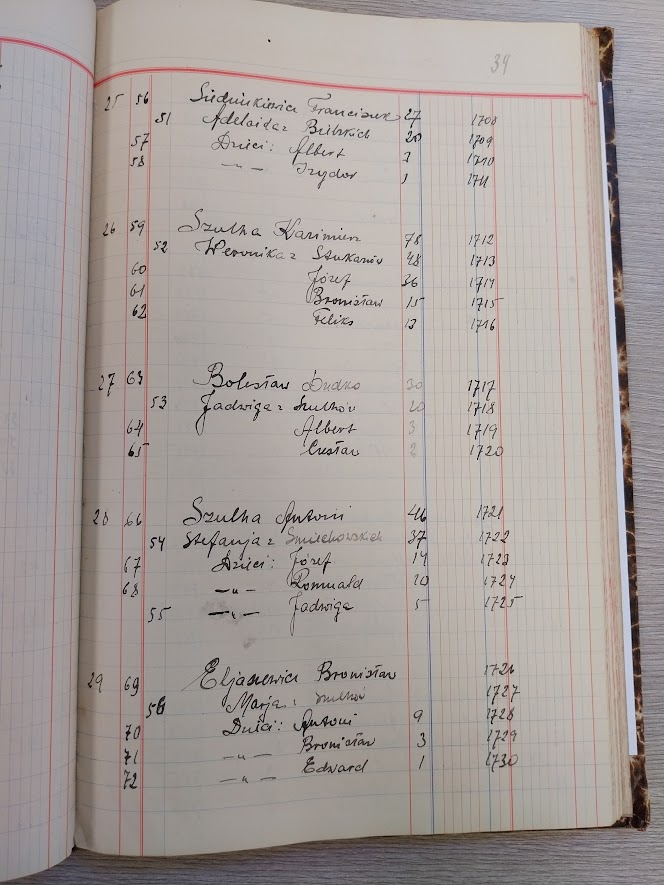 34
25 56 Siedunkiewicz Franciszek 27 1708
51 Adelaida z Bielskich 20 1709
57 Dzieci: Albert 3 1710
58 -„- Izydor 1 1711
26 59 Szulha Kazimierz 78 1712
52 Weronika z Stukanów 48 1713
60 Józef 36 1714
61 Bronisław 15 1715
62 Feliks 13 1716
27 63 Bolesław Dudko 30 1717
53 Jadwiga z Szulhów 20 1718
64 Albert 3 1719
65 Czesław 2 1720
28 66 Szulha Antoni 46 1721
54 Stefanja z Śmiechowskich 37 1722
67 Dzieci: Józef 14 1723
68 -„- Romuald 10 1724
55 -„- Jadwiga 5 1725
29 69 Eljasewicz Bronisław 1726
56 Marja z Szulhów 1727
70 Dzieci: Antoni 9 1728
71 -„- Bronisław 3 1729
72 -„- Edward 1 1730